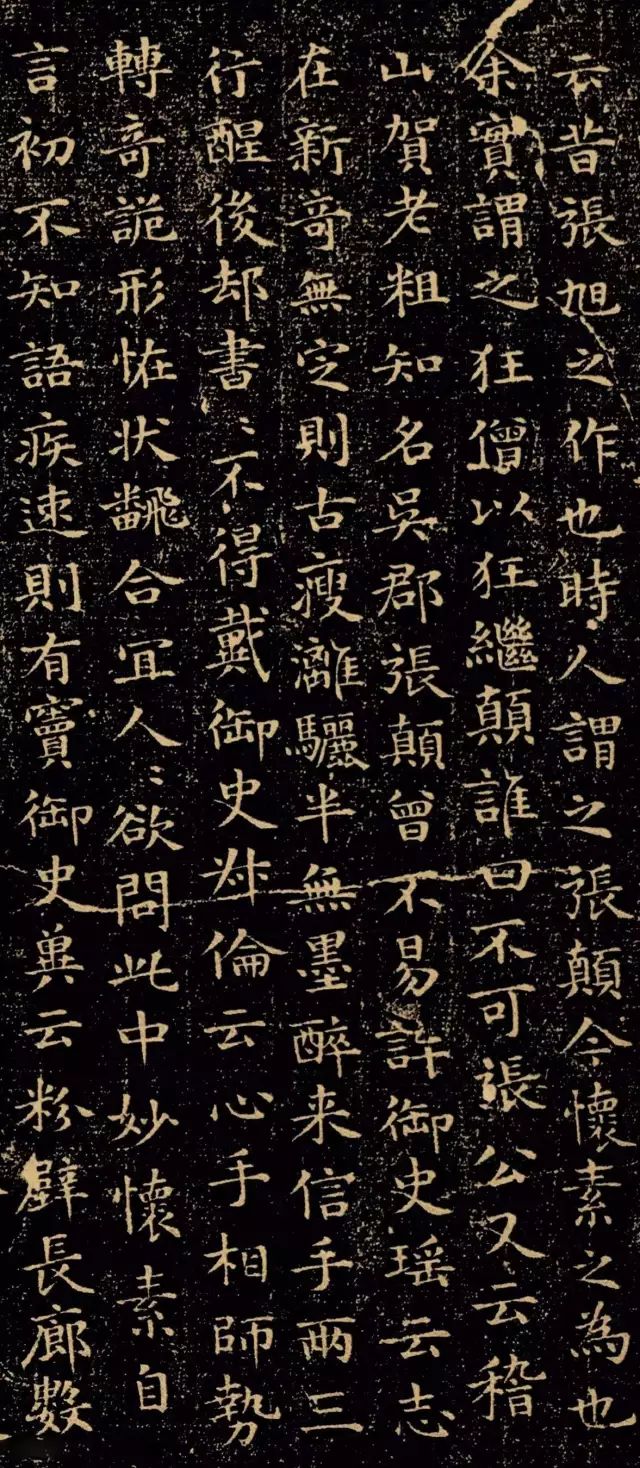 云昔張旭之作也時人謂之張顛今懷素之為也
余實謂之狂僧以狂繼顛誰曰不可張公又云稽
山賀老粗知名吳郡張顛曾不易許御史瑶云志
在新奇無定則古瘦灕驪半無墨醉来信手兩三
行醒後却書〻不得戴御史叔倫云心手相師勢
轉奇詭形恠状飜合冝人〻欲問此中妙懷素自
言初不知語疾速則有竇御史兾云粉壁長廊數